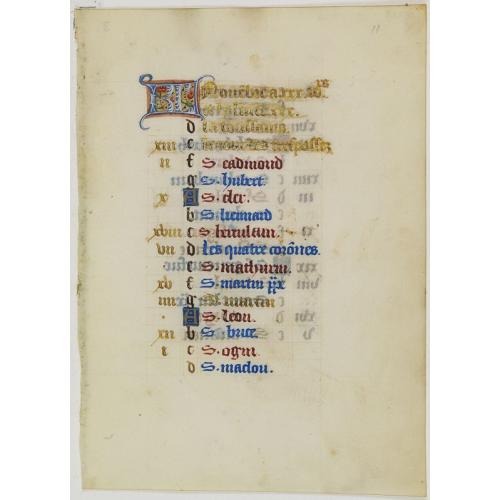 KL Nouēbre a. xxx. io's
et la lune xxx.
d La toussains.
xiii e trespassez
ii f S. eadmond
g S. hubert.
x A S. cler.
b S. lienard
xviii c S. herulain.
vii d Les quatre corōnes.
e S. mathurin.
xv f S. martin
iiii g S. martin
A S. leon.
xii b S. brice.
i c S. ogni.
d S. maclou.